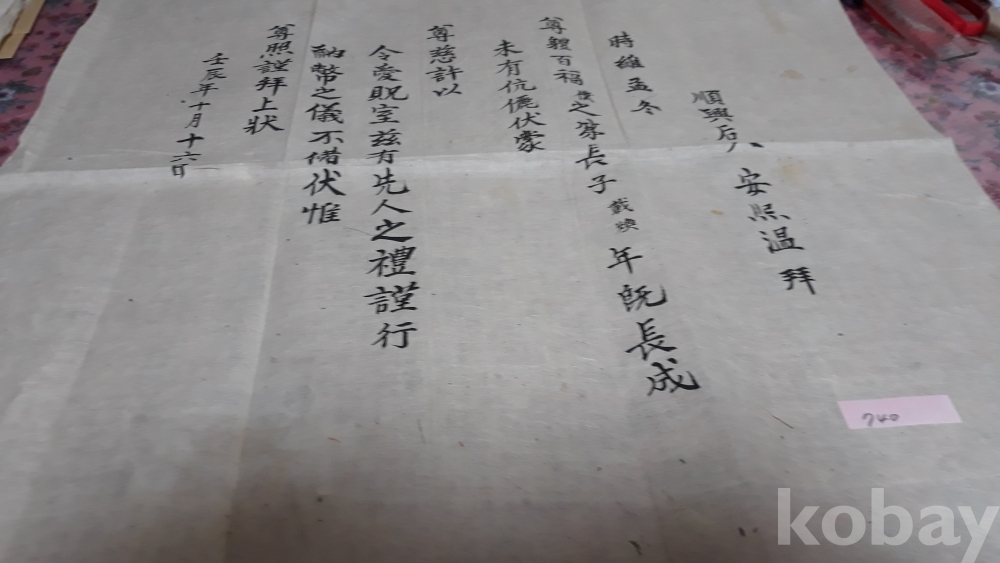 順興后人 安照温 拜
時維孟冬
尊體百福 僕之家長子 載煥 年旣長成
未有伉儷伏蒙
尊慈許以
令愛貺室茲有先人之禮謹行
納幣之儀不備伏惟
尊照謹拜上狀
壬辰年十月十六日
740
kobay